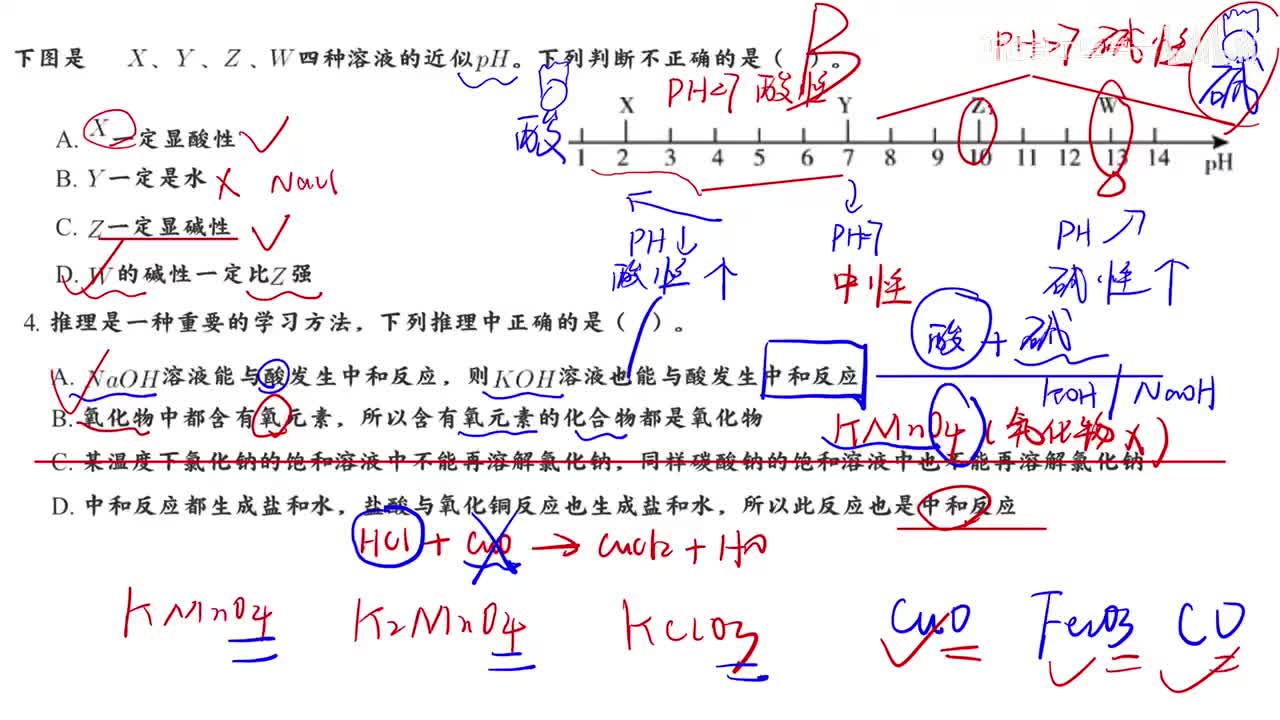 下图是 X、Y、Z、W四种溶液的近似pH。下列判断不正确的是( )。
B
PH>7 碱性
碱
PH<7 酸性
酸
X Y Z W
1 2 3 4 5 6 7 8 9 10 11 12 13 14 pH
A. X一定显酸性
B. Y一定是水 NaCl
C. Z一定显碱性
D. W的碱性一定比Z强
PH↓
酸性↑
PH=7
中性
PH↗
碱性↑
4. 推理是一种重要的学习方法，下列推理中正确的是( )。
酸 + 碱
A. NaOH溶液能与酸发生中和反应，则KOH溶液也能与酸发生中和反应
KOH / NaOH
B. 氧化物中都含有氧元素，所以含有氧元素的化合物都是氧化物
KMnO4 (氧化物×)
C. 某温度下氯化钠的饱和溶液中不能再溶解氯化钠，同样碳酸钠的饱和溶液中也不能再溶解氯化钠
D. 中和反应都生成盐和水，盐酸与氧化铜反应也生成盐和水，所以此反应也是中和反应
HCl + CuO → CuCl2 + H2O
KMnO4 K2MnO4 KClO3 CuO Fe2O3 CO